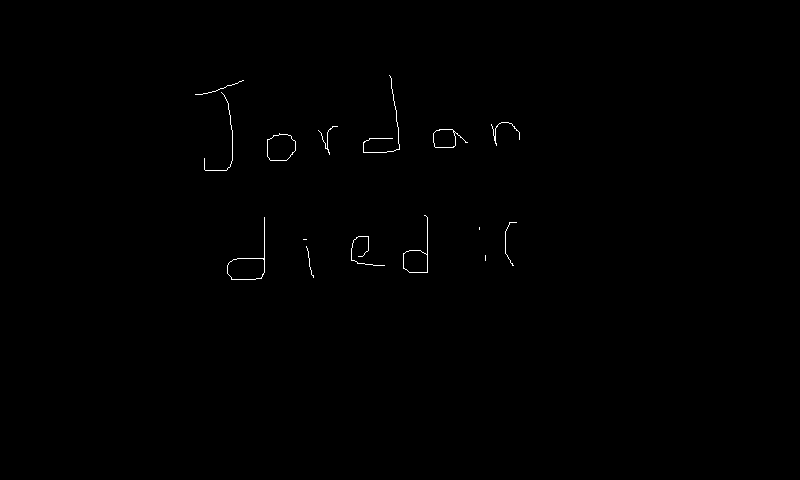 Jordan
died :(